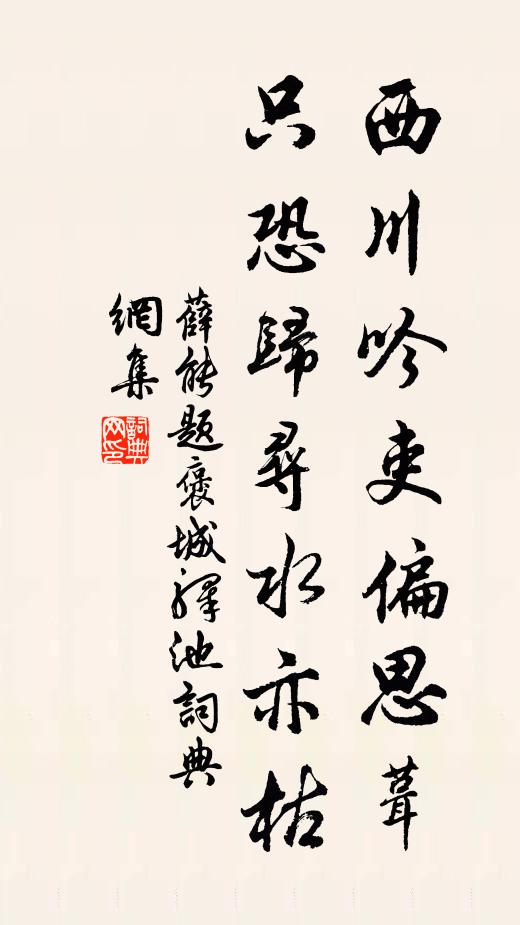 西川吟吏偏思葺
只恐歸尋水亦枯
薛能題褒城驛池詞典
網集
詞典網印